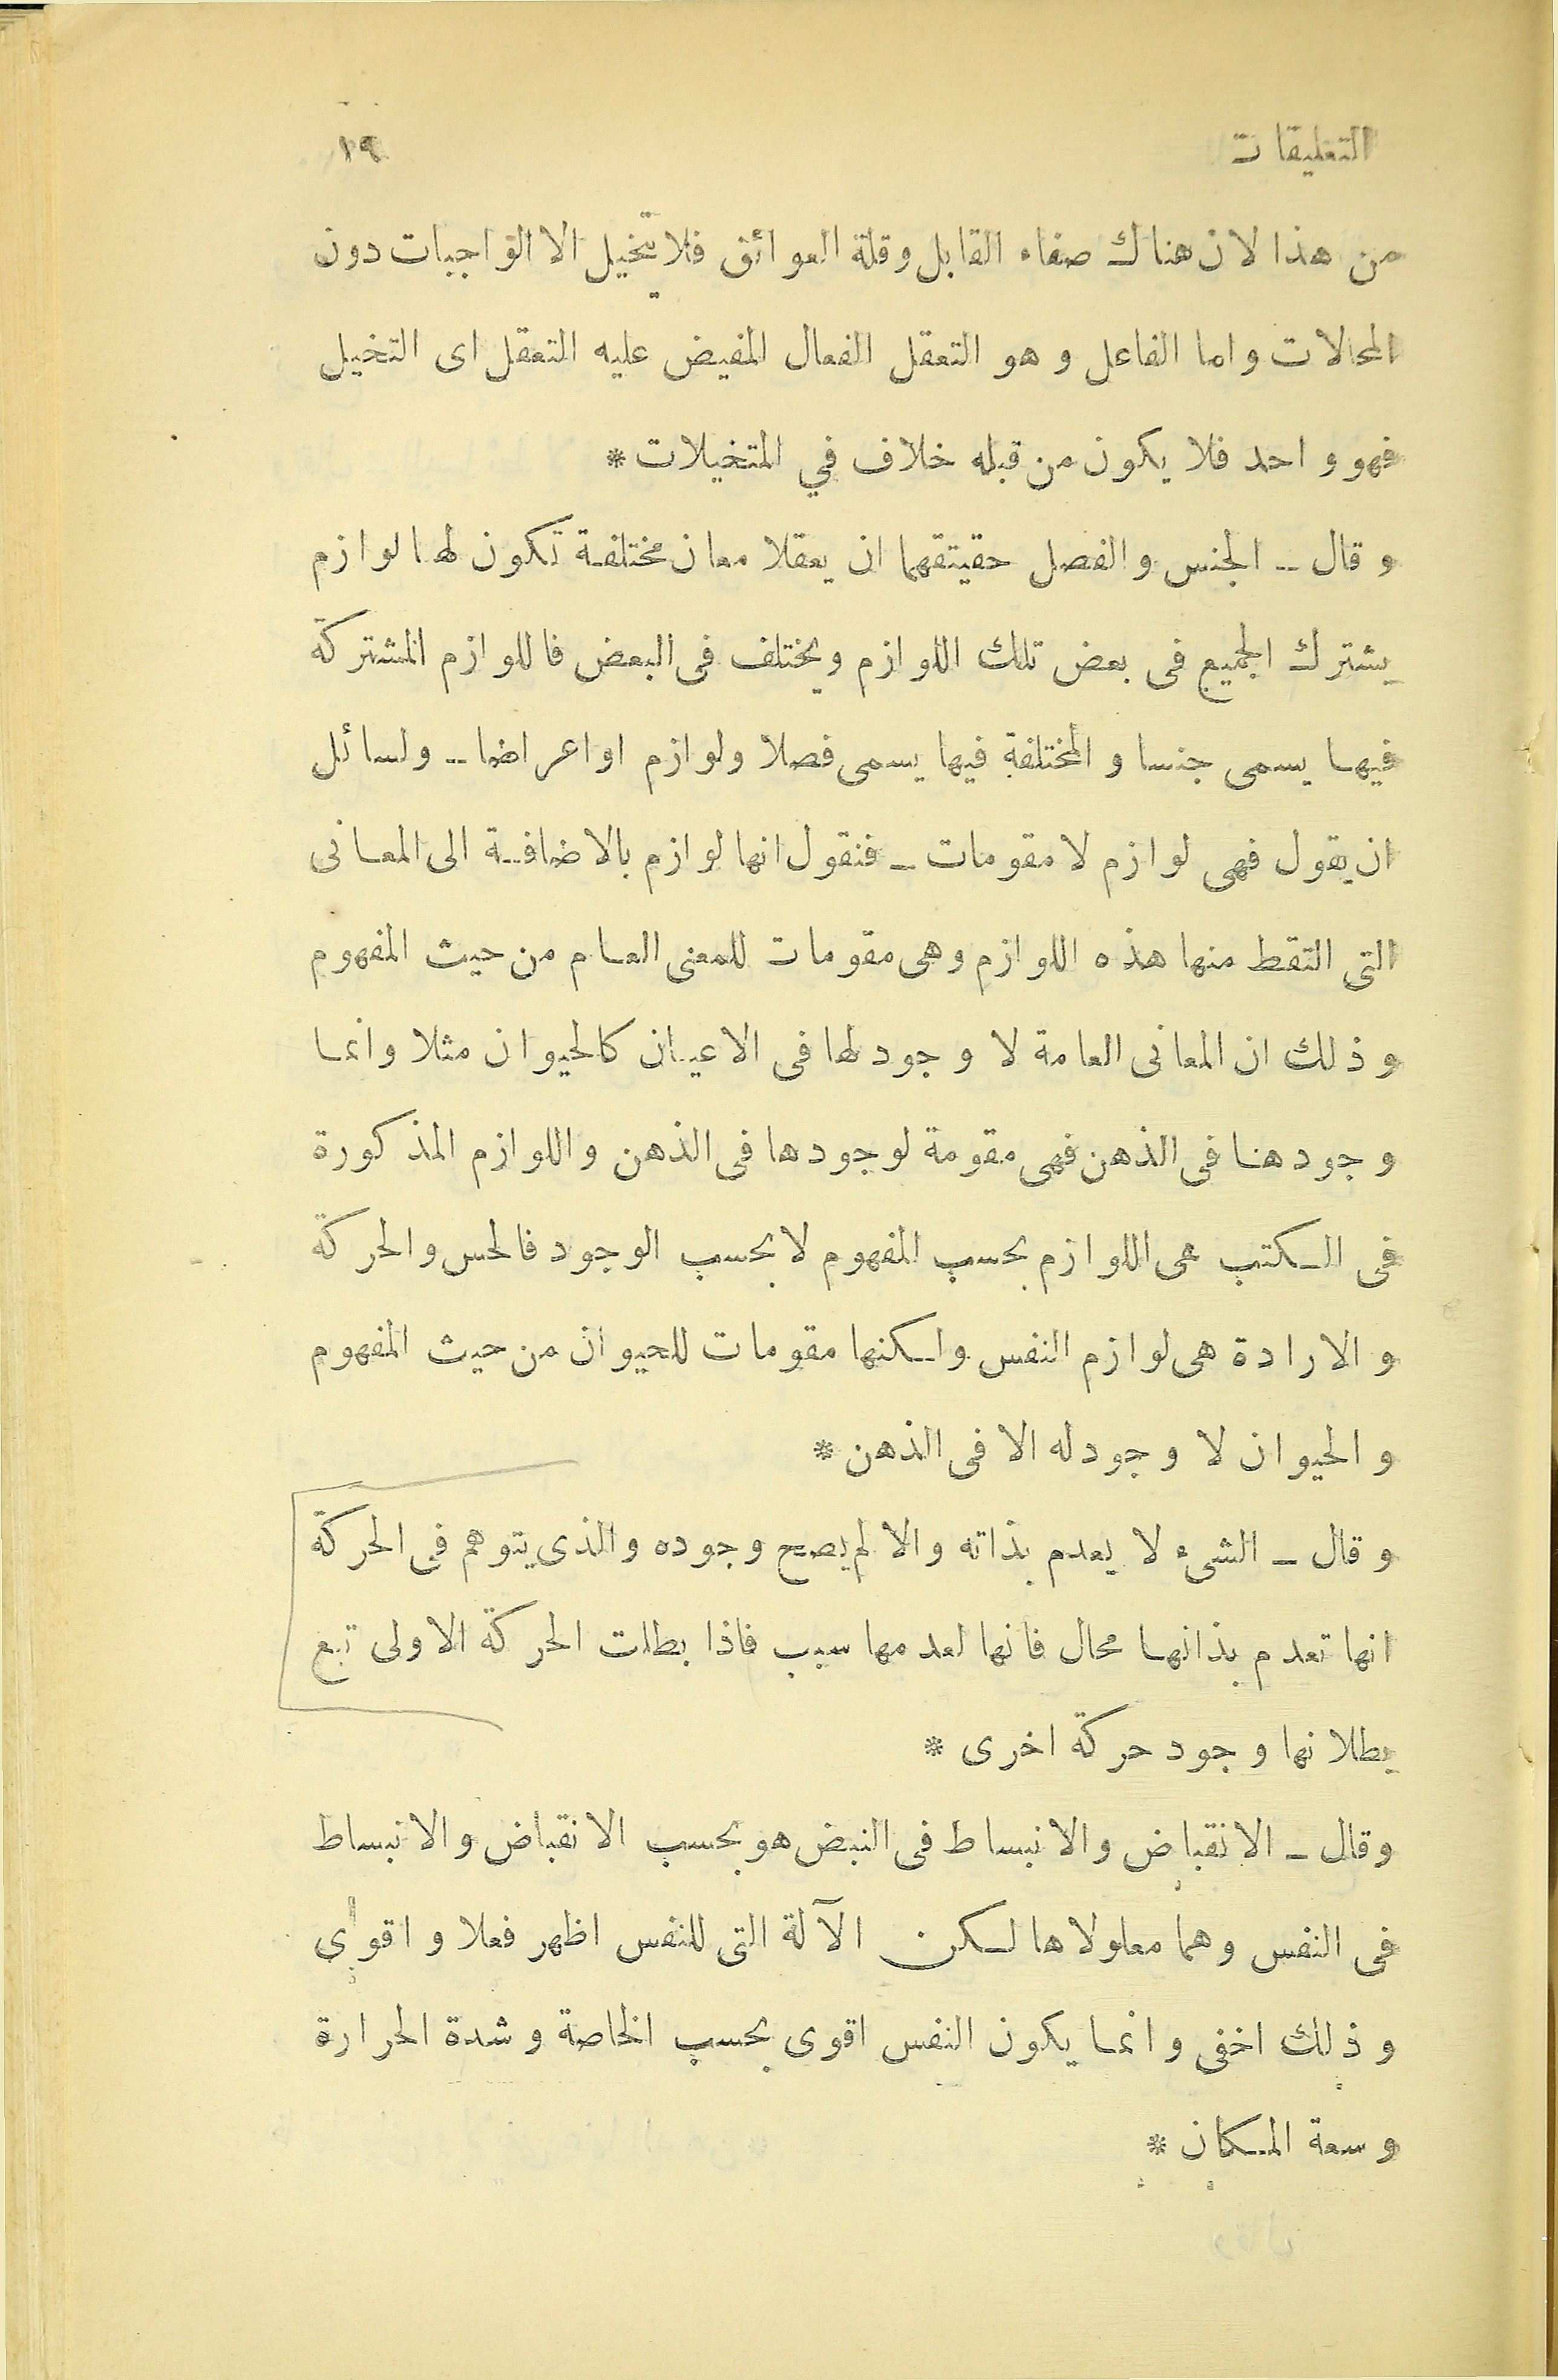 التعليقات ١٩
من هذا لان هناك صفاء القابل وقلة العوائق فلا يتخيل الا الواجبات دون
المحالات واما الفاعل وهو التعقل الفعال المفيض عليه التعقل اى التخيل
فهو واحد فلا يكون من قبله خلاف في المتخيلات *
وقال - الجنس والفصل حقيتقهما ان يعقلا معان مختلفة تكون لها لوازم
يشترك الجميع فى بعض تلك اللوازم ويختلف فى البعض فاللوازم المشتركة
فيها يسمى جنسا والمختلفة فيها يسمى فصلا ولوازم او اعراضا - ولسائل
ان يقول فهى لوازم لا مقومات - فنقول انها لوازم بالاضافة الى المعانى
التى التقط منها هذه اللوازم وهى مقومات للمعنى العام من حيث المفهوم
وذلك ان المعانى العامة لا وجود لها فى الاعيان كالحيوان مثلا وانما
وجودهنا فى الذهن فهى مقومة لوجودها فى الذهن واللوازم المذكورة
فى الكتب هى اللوازم بحسب المفهوم لا بحسب الوجود فالحس والحركة
والارادة هى لوازم النفس ولكنها مقومات للحيوان من حيث المفهوم
والحيوان لا وجود له الا فى الذهن *
وقال - الشىء لا يعدم بذاته والا لم يصح وجوده والذى يتوهم فى الحركة
انها تعدم بذاتها محال فانها لعدمها سبب فاذا بطلت الحركة الاولى تبع
بطلانها وجود حركة اخرى *
وقال - الانقباض والانبساط فى النبض هو بحسب الانقباض والانبساط
فى النفس وهما معلولاها لكن الآلة التى للنفس اظهر فعلا واقوى
وذلك اخفى وانما يكون النفس اقوى بحسب الخاصة وشدة الحرارة
وسعة المكان *